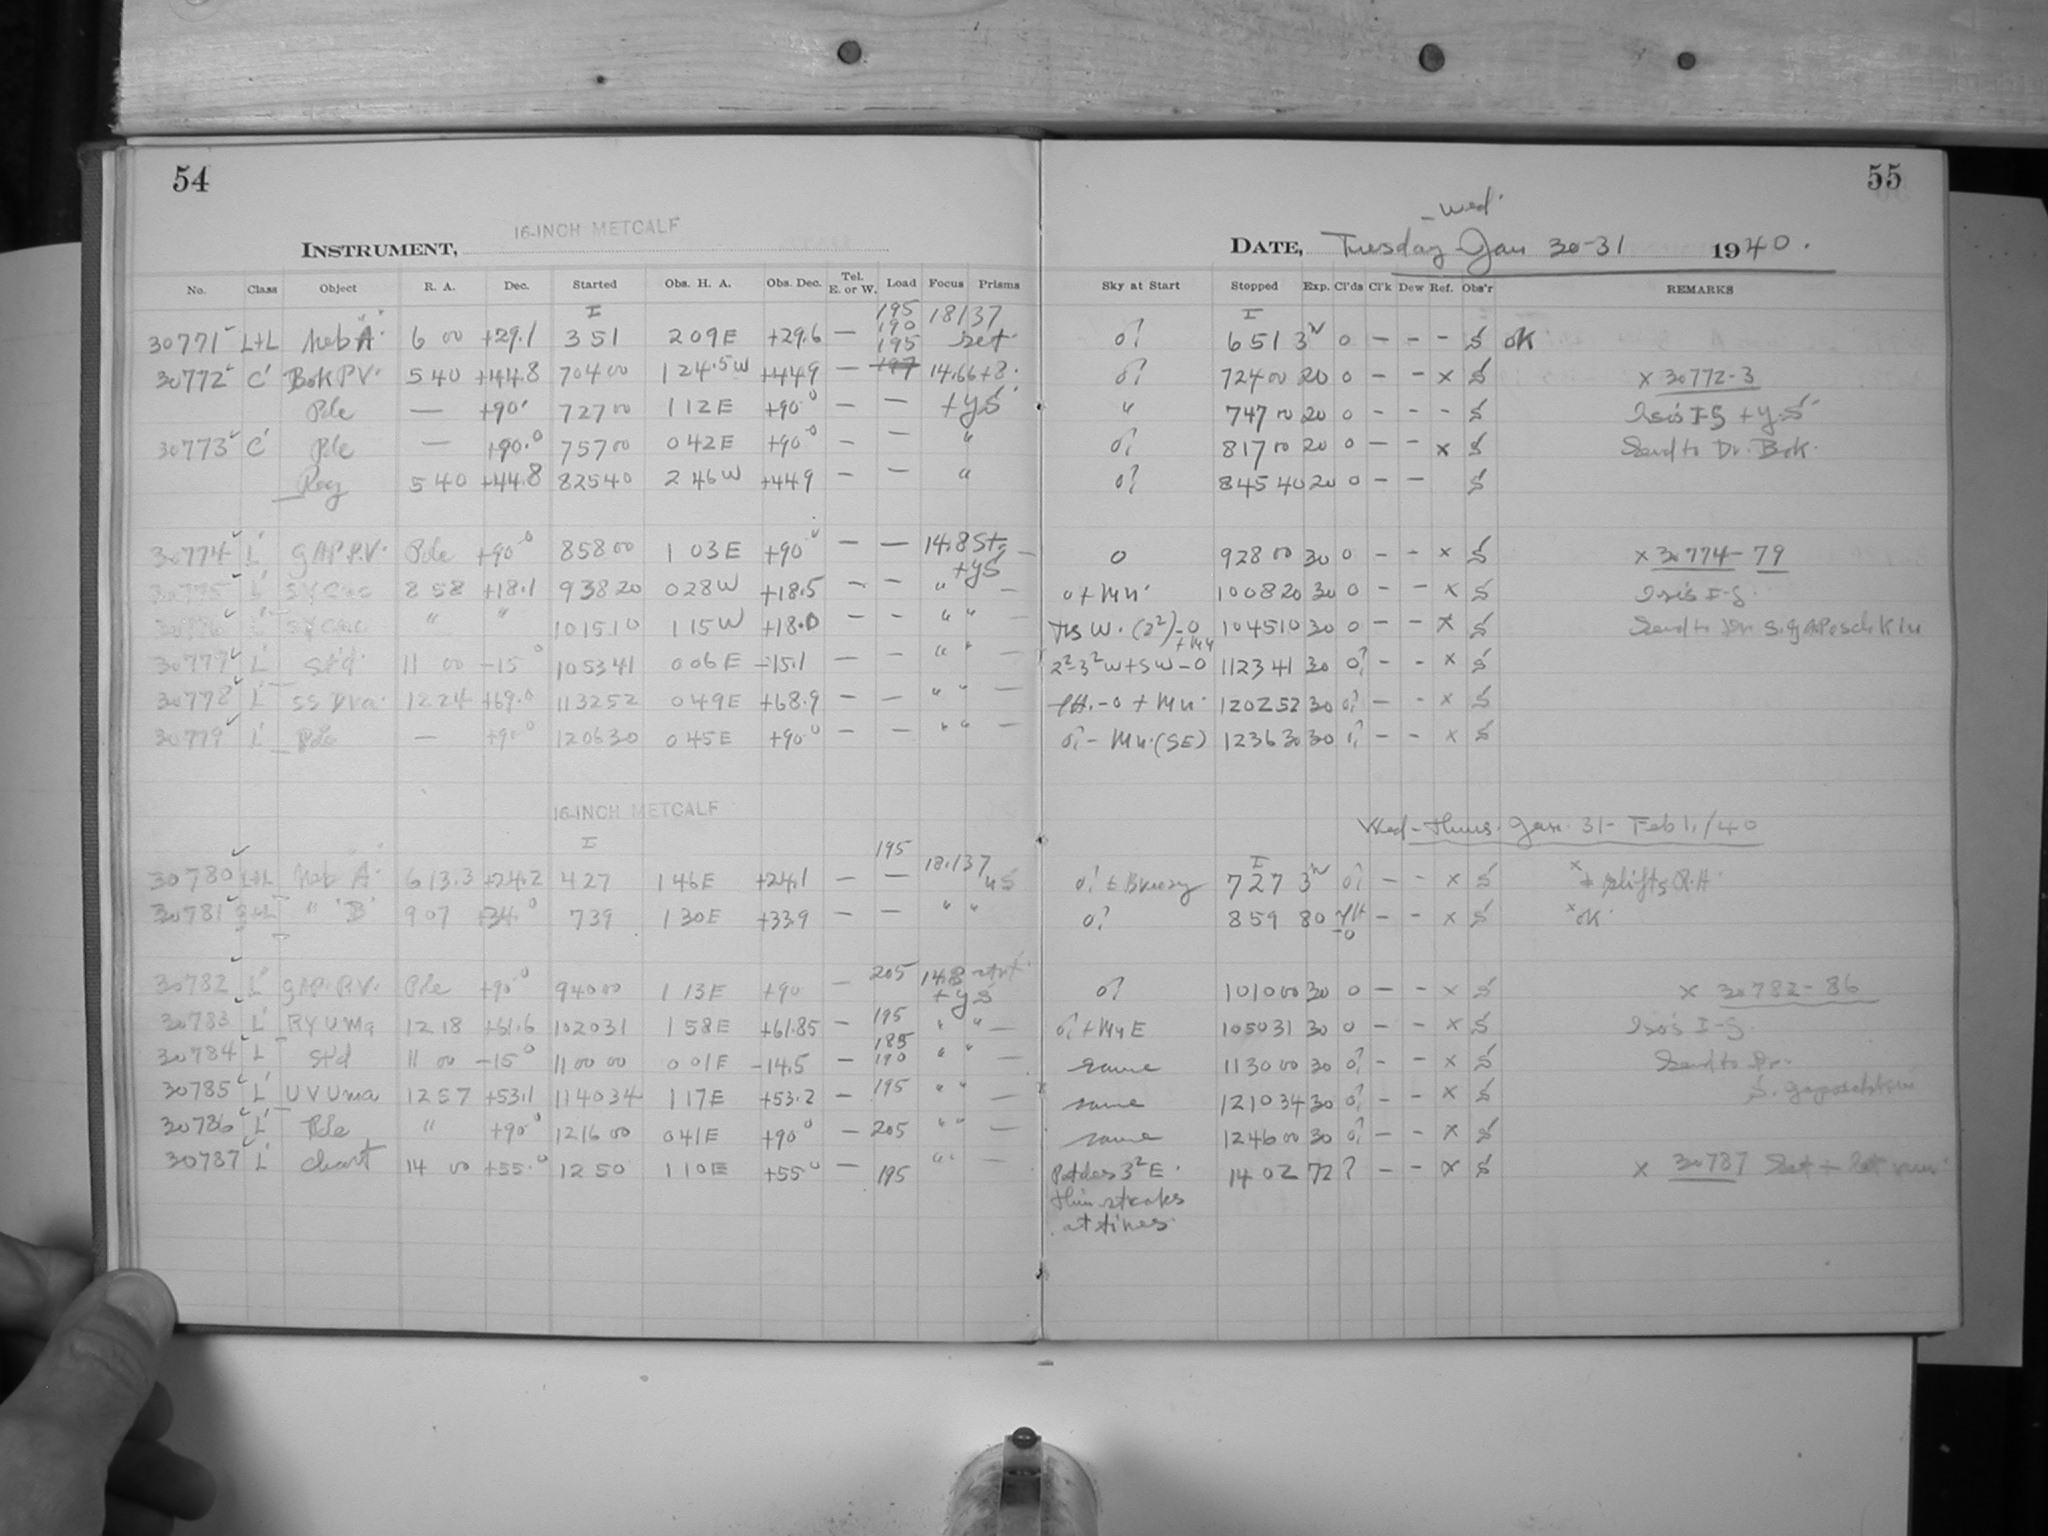 54
55
16-INCH METCALF
INSTRUMENT,
- Wed.
DATE, Tuesday Jan 30-31 1940.
No. Class Object R. A. Dec. Started Obs. H. A. Obs. Dec. Tel. E. or W. Load Focus Prisms Sky at Start Stopped Exp. Cl'ds Cl'k Dew Ref. Obs'r REMARKS
I 195 190 18137 I
30771 L+L Neb "A" 6 00 +29.1 3 51 2 09 E +29.6 — 195 set 0? 6 51 3 0 — — — S OK
30772 C' Bok P.V. 5 40 +44.8 7 04 00 1 24.5 W +449 — 197 14.66+8. 0? 7 24 00 20 0 — — x S x 30772-3
Pole — +90° 7 27 00 1 12 E +90° — — +yS " 7 47 00 20 0 — — — S Isis I-S + y.S
30773 C' Pole — +90.0 7 57 00 0 42 E +90° — — " 0? 8 17 00 20 0 — — x S Send to Dr. Bok.
Reg 5 40 +44.8 8 25 40 2 46 W +449 — — " 0? 8 45 40 20 0 — — S
30774 L' GAP P.V. Pole +90° 8 58 00 1 03 E +90° — — 14.8 St. +yS — 0 9 28 00 30 0 — — x S x 30774-79
30775 L' SY Cnc 8 58 +18.1 9 38 20 0 28 W +18.5 — — " — 0 + Mn. 10 08 20 30 0 — — x S Isis I-S.
30776 L' SY Cnc " " 10 15 10 1 15 W +18.0 — — " " Ths W. (2²) - 0 + Mn 10 45 10 30 0 — — x S Send to Dr S. Gaposchkin
30777 L' St'd 11 00 -15° 10 53 41 0 06 E -15.1 — — " " 2²-3² W + SW - 0 11 23 41 30 0? — — x S
30778 L' SS Dra. 12 24 +69.0 11 32 52 0 49 E +68.9 — — " " — - 0 + Mn. 12 02 52 30 0? — — x S
30779 L' Pole — +90° 12 06 30 0 45 E +90° — — " " — 0? - Mn. (SE) 12 36 30 30 1? — — x S
16-INCH METCALF
Wed - Thurs. Jan. 31 - Feb 1, /40
I 195 I
30780 L+L Neb "A" 6 13.3 +24.2 4 27 1 46 E +24.1 — — 18.137 0? ± Breezy 7 27 3 0? — — x S x R.H.
30781 " "B" 9 07 +34.0 7 39 1 30 E +33.9 — — " " 0? 8 59 80 -0 — — x S x OK.
30782 L' GAP. P.V. Pole +90° 9 40 00 1 13 E +90 — 205 14.8 +yS 0? 10 10 00 30 0 — — x S x 30782-86
30783 L' RY UMa 12 18 +61.6 10 20 31 1 58 E +61.85 — 195 " " — 0? + Mn E 10 50 31 30 0 — — x S Isis I-S.
30784 L' St'd 11 00 -15° 11 00 00 0 01 E -14.5 — 185 190 " " — same 11 30 00 30 0? — — x S Send to Dr.
30785 L' UV Uma 12 57 +53.1 11 40 34 1 17 E +53.2 — 195 " " — same 12 10 34 30 0? — — x S S. Gaposchkin
30786 L' Pole " +90° 12 16 00 0 41 E +90° — 205 " " — same 12 46 00 30 0? — — x S
30787 L' chart 14 00 +55.0 12 50 1 10 E +55° — 195 " " — Patches 3² E. 14 02 72 ? — — x S x 30787
thin streaks
at times.